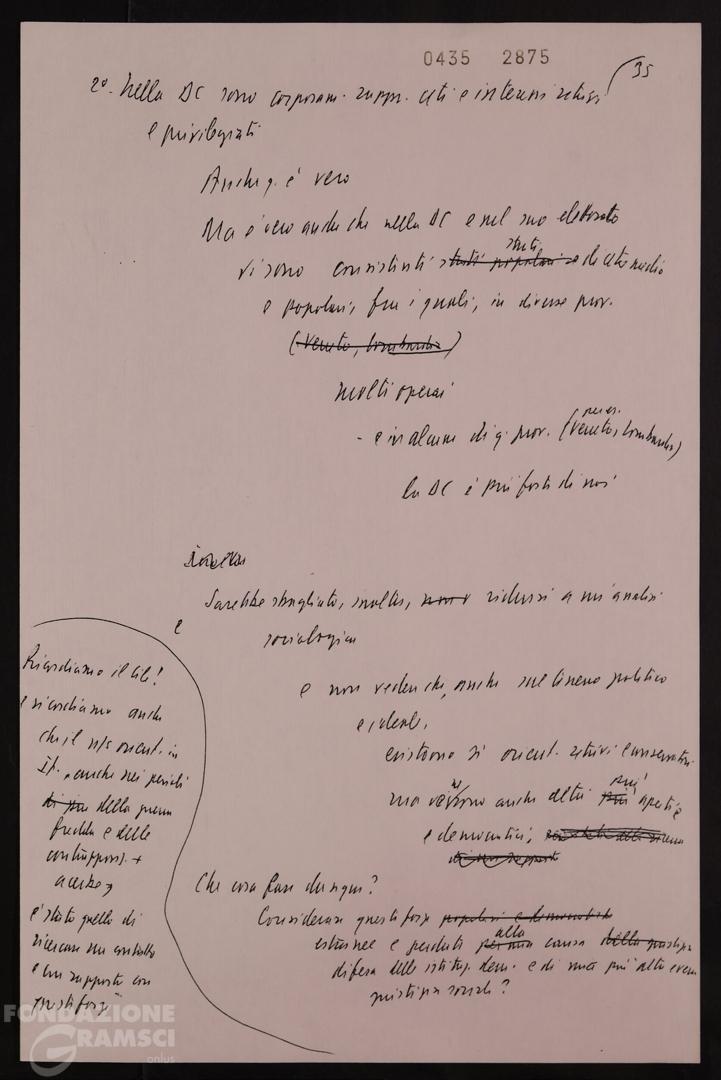 0435 2875
35
2° - Nella DC sono corposam. rappr. ceti e interessi retrivi
e privilegiati
Anche q. è vero
Ma è vero anche che nella DC e nel suo elettorato
strati
vi sono consistenti strati popolari e di ceto medio
e popolari, fra i quali, in diverse prov.
(Veneto, Lombardia)
molti operai
per es.
- e in alcune di q. prov. (Veneto, Lombardia)
la DC è più forte di noi
Sarebbe sbagliato, inoltre, ridursi a un'analisi
e
sociologica
e non vedere che, anche sul terreno politico
e ideale,
esistono sì orient. retrivi e conservatori
ma ve ne sono anche altri più aperti e
e democratici,
Che cosa fare dunque?
Considerare queste forze popolari e democratiche
alla
estranee e perdute causa della
difesa delle istituz. dem. e di una più alta
giustizia sociale?
Ricordiamo il Cile!
e ricordiamo anche
che il ns orient. in
It., anche nei periodi
della guerra
fredda e delle
contrapposiz. +
acute,
è stato quello di
ricercare un contatto
e un rapporto con
queste forze
FONDAZIONE
GRAMSCI
onlus